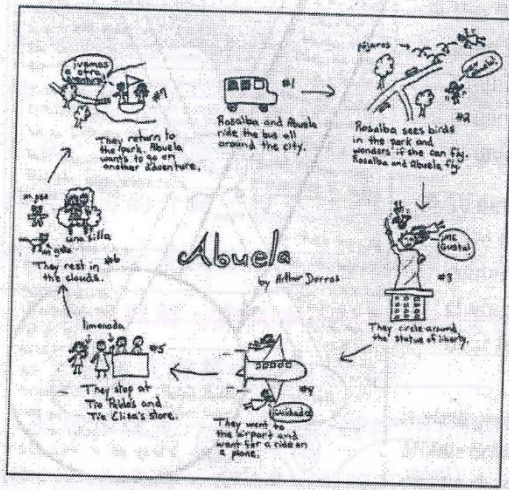 Abuela
by Arthur Dorros
#1
Rosalba and Abuela
ride the bus all
around the city.
pájaros
#2
Rosalba sees birds
in the park and
wonders if she can fly.
Rosalba and Abuela fly.
¡Me
Gusta!
#3
They circle around
the statue of liberty.
#4
Cuidado
They went to
the airport and
went for a ride on
a plane.
limonada
#5
They stop at
Tío Pablo's and
Tía Elisa's store.
una silla
#6
They rest in
the clouds.
¡vamos
a otra
#7
They return to
the park. Abuela
wants to go on
another adventure.